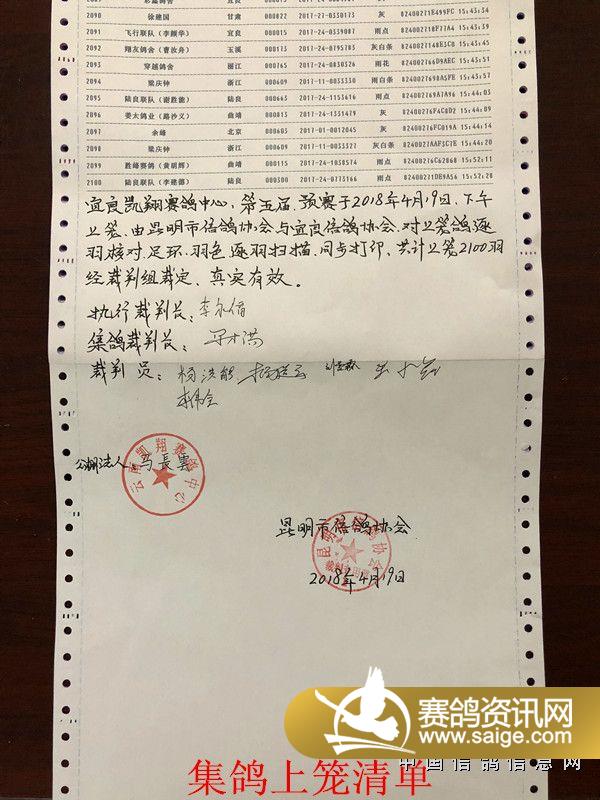 2090 徐建国 甘肃 000822 2017-27-0330173 灰 82400271E499FC 15:43:34
2091 飞行联队（李颜华） 宜良 000015 2017-24-0339087 雨点 82400271BF77A4 15:43:39
2092 翔友鸽舍（曹汝舟） 玉溪 000173 2017-24-0795783 灰白条 8240027148E3CB 15:43:45
2093 穿越鸽舍 丽江 000765 2017-24-0830326 雨花 82400271
2094 梁庆钟 浙江 000609 2017-11-0033330 雨白条 15:43:57
2095 陆良联队（谢胜能） 陆良 000665 2017-24-1153616 雨点 15:44:03
2096 姜太鸽业（路沙义） 曲靖 000813 2017-24-1331479 灰 15:44:09
2097 余峰 北京 000605 2017-01-0012045 灰 15:44:14
2098 梁庆钟 浙江 000609 2017-11-0033327 灰白条 15:44:20
2099 胜峰赛鸽（黄明辉） 曲靖 000115 2017-24-1038574 雨点 82400276C62868 15:52:11
2100 陆良联队（李建德） 陆良 000078 2017-24-0773166 雨点 82400271DB9A56 15:52:28
宜良凯翔赛鸽中心，第五届 预赛于2018年4月19日.下午
上笼，由昆明市信鸽协会与宜良信鸽协会.对上笼鸽.逐
羽核对.足环.羽色.逐羽扫描.同步打印.共计上笼2100羽
经裁判组裁定、真实有效。
执行裁判长：李永信
集鸽裁判长：
裁判员：杨洪能
公棚法人：马長雲
云南凯翔赛鸽中心
昆明市信鸽协会
2018年4月19日
赛鸽资讯网
www.saige.com
中国信鸽信息网
集鸽上笼清单